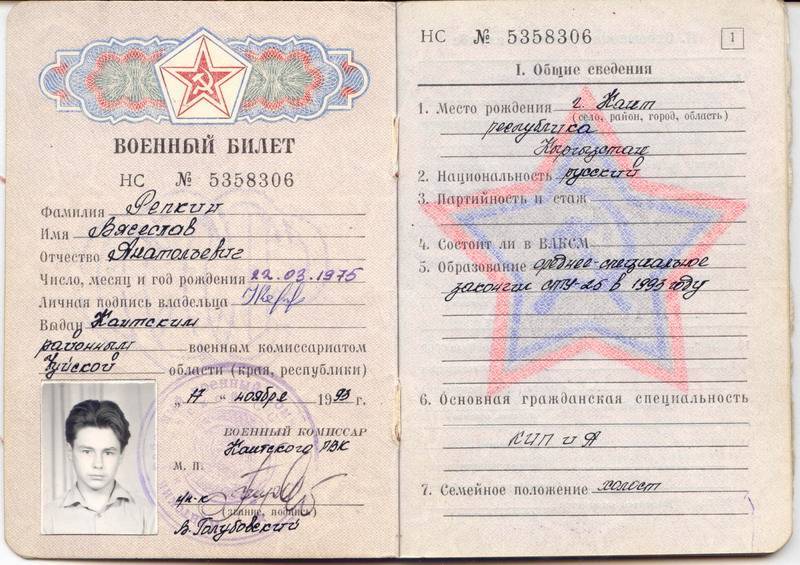 ВОЕННЫЙ БИЛЕТ
НС № 5358306
Фамилия Репкин
Имя Вячеслав
Отчество Анатольевич
Число, месяц и год рождения 22.03.1975
Личная подпись владельца
Выдан Кантским
районным военным комиссариатом
Чуйской области (края, республики)
„17“ ноября 1993 г.
ВОЕННЫЙ КОМИССАР
Кантского РВК
М. П.
п/п-к
(звание, подпись)
В. Голубовский
НС № 5358306
1
I. Общие сведения
1. Место рождения г. Кант
(село, район, город, область)
республика
Кыргызстан
2. Национальность русский
3. Партийность и стаж
4. Состоит ли в ВЛКСМ
5. Образование средне-специальное
закончил СПТУ-26 в 1993 году
6. Основная гражданская специальность
КИП и А
7. Семейное положение холост